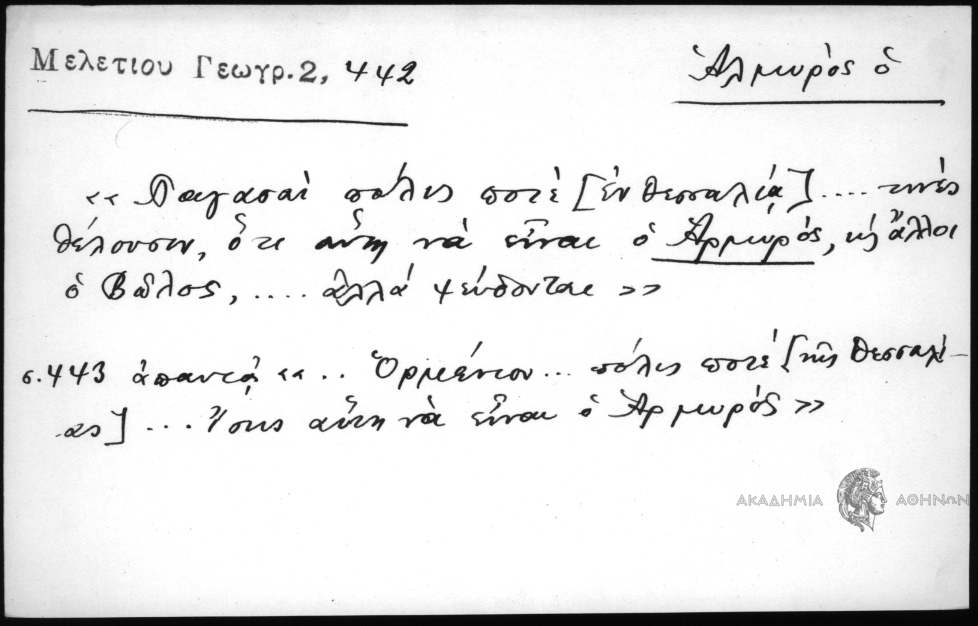 Μελετιου Γεωγρ. 2, 442
Ἁλμυρός ὁ
«Παγασαὶ πόλις ποτέ [ἐν Θεσσαλίᾳ].... τινές
θέλουσιν, ὅτι αὕτη νὰ εἶναι ὁ Ἁρμυρός, κ̀ ἄλλοι
ὁ Βῶλος, .... ἀλλά ψεύδονται»
σ. 443 ἀπαντᾷ «.. Ὀρμένιον... πόλις ποτέ [τῆς Θεσσαλί-
ας] ... Ἴσως αὕτη νὰ εἶναι ὁ Ἁρμυρός»
ΑΚΑΔΗΜΙΑ ΑΘΗΝΩΝ